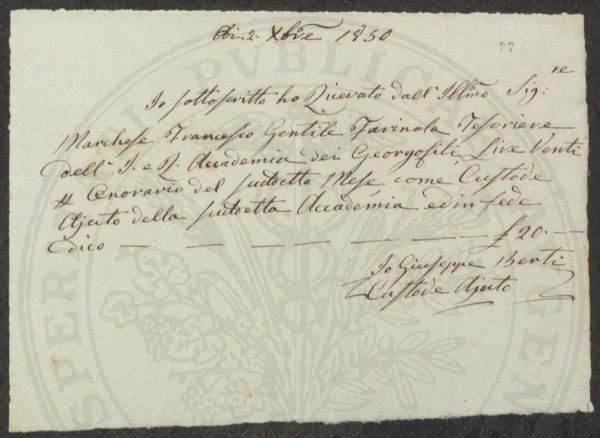 Adi. 2. Xbre 1830
77
Io sottoscritto ho Ricevato dall' Illmo Sig:re
Marchese Francesco Gentile Farinola Tesoriere
dell' I. e R. Accademia dei Georgofili Lire Venti
Onorario del sudetto Mese come Custode
Ajuto della sudetta Accademia ed in fede
dico — — — — — — — £ 20. —
Io Giuseppe Berti
Custode Ajuto